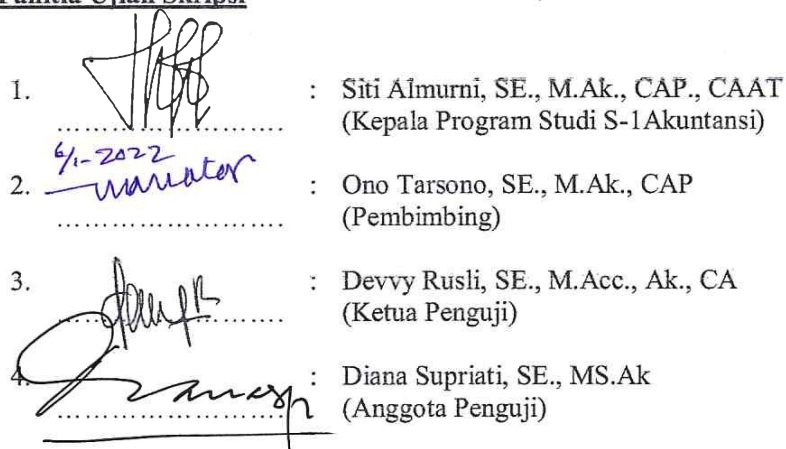 Panitia Ujian Skripsi
1. ........................ : Siti Almurni, SE., M.Ak., CAP., CAAT
(Kepala Program Studi S-1Akuntansi)
6/1-2022
2. ........................ : Ono Tarsono, SE., M.Ak., CAP
(Pembimbing)
3. ........................ : Devvy Rusli, SE., M.Acc., Ak., CA
(Ketua Penguji)
4. ........................ : Diana Supriati, SE., MS.Ak
(Anggota Penguji)